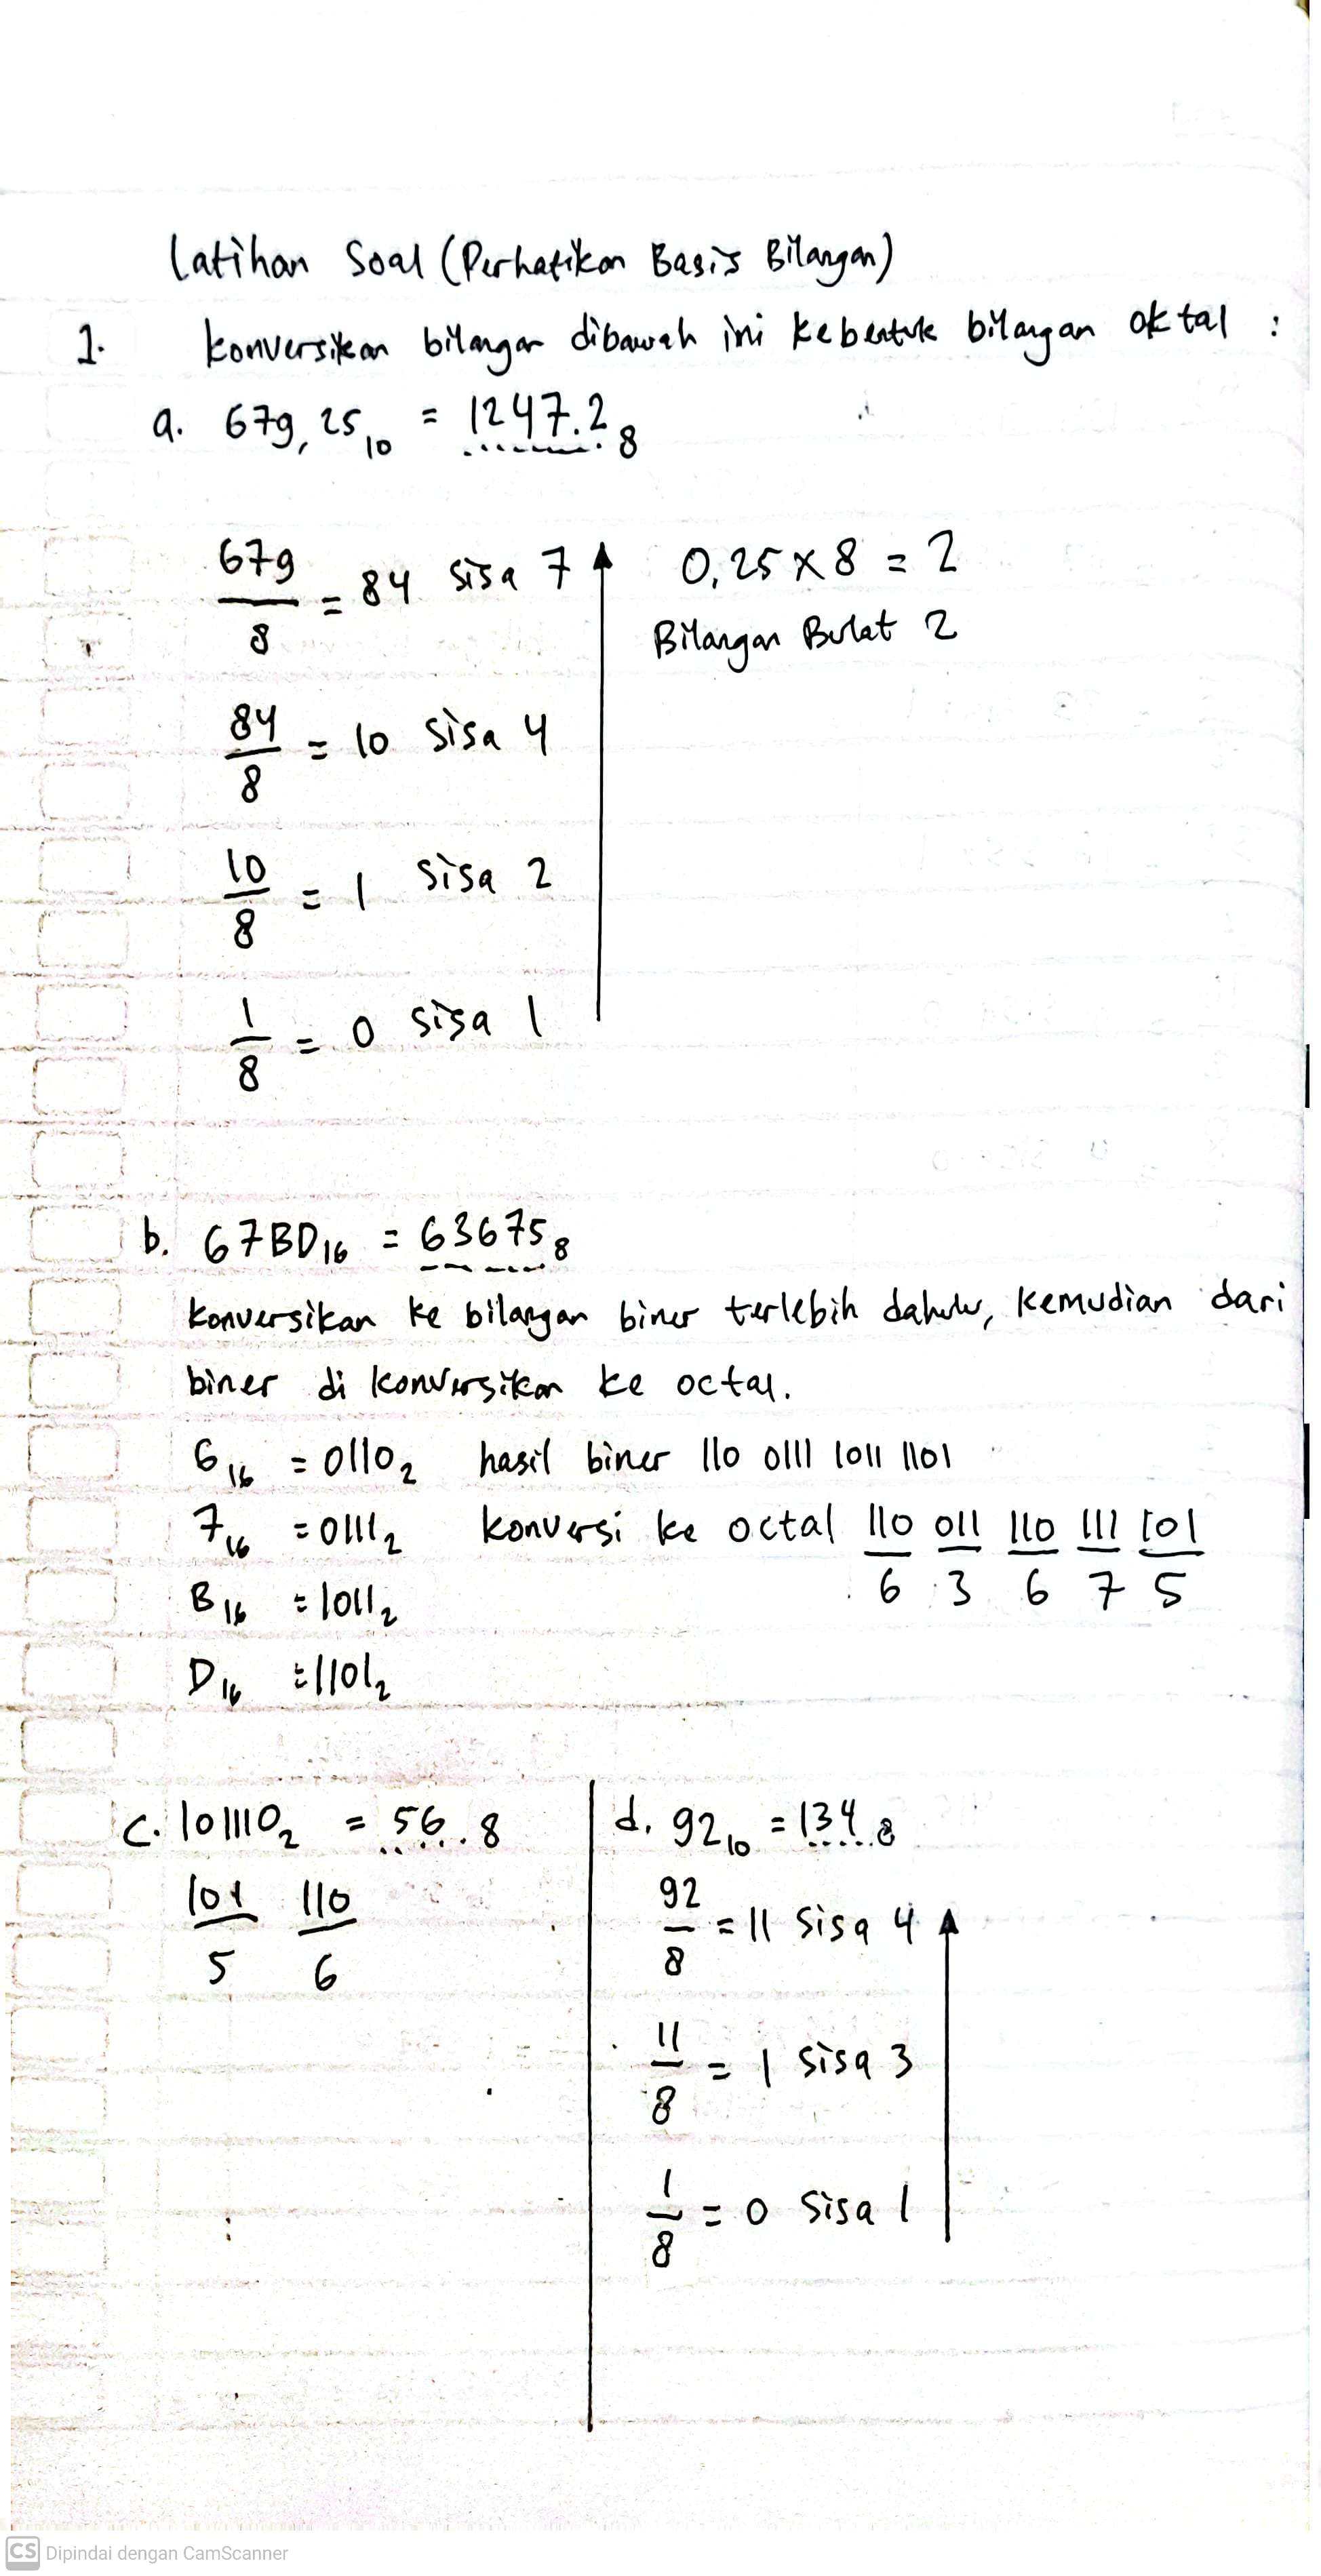 Latihan Soal (Perhatikan Basis Bilangan)
1. Konversikan bilangan dibawah ini kebentuk bilangan oktal :
a. 679,25₁₀ = 1247.2₈
679/8 = 84 sisa 7
0,25 x 8 = 2
Bilangan Bulat 2
84/8 = 10 sisa 4
10/8 = 1 sisa 2
1/8 = 0 sisa 1
b. 67BD₁₆ = 63675₈
Konversikan ke bilangan biner terlebih dahulu, kemudian dari
biner di konversikan ke octal.
6₁₆ = 0110₂ hasil biner 110 0111 1011 1101
7₁₆ = 0111₂ konversi ke octal 110 011 110 111 101
6 3 6 7 5
B₁₆ = 1011₂
D₁₆ = 1101₂
c. 101110₂ = 56..8
101 110
5 6
d. 92₁₀ = 134..8
92/8 = 11 sisa 4
11/8 = 1 sisa 3
1/8 = 0 sisa 1
CS Dipindai dengan CamScanner